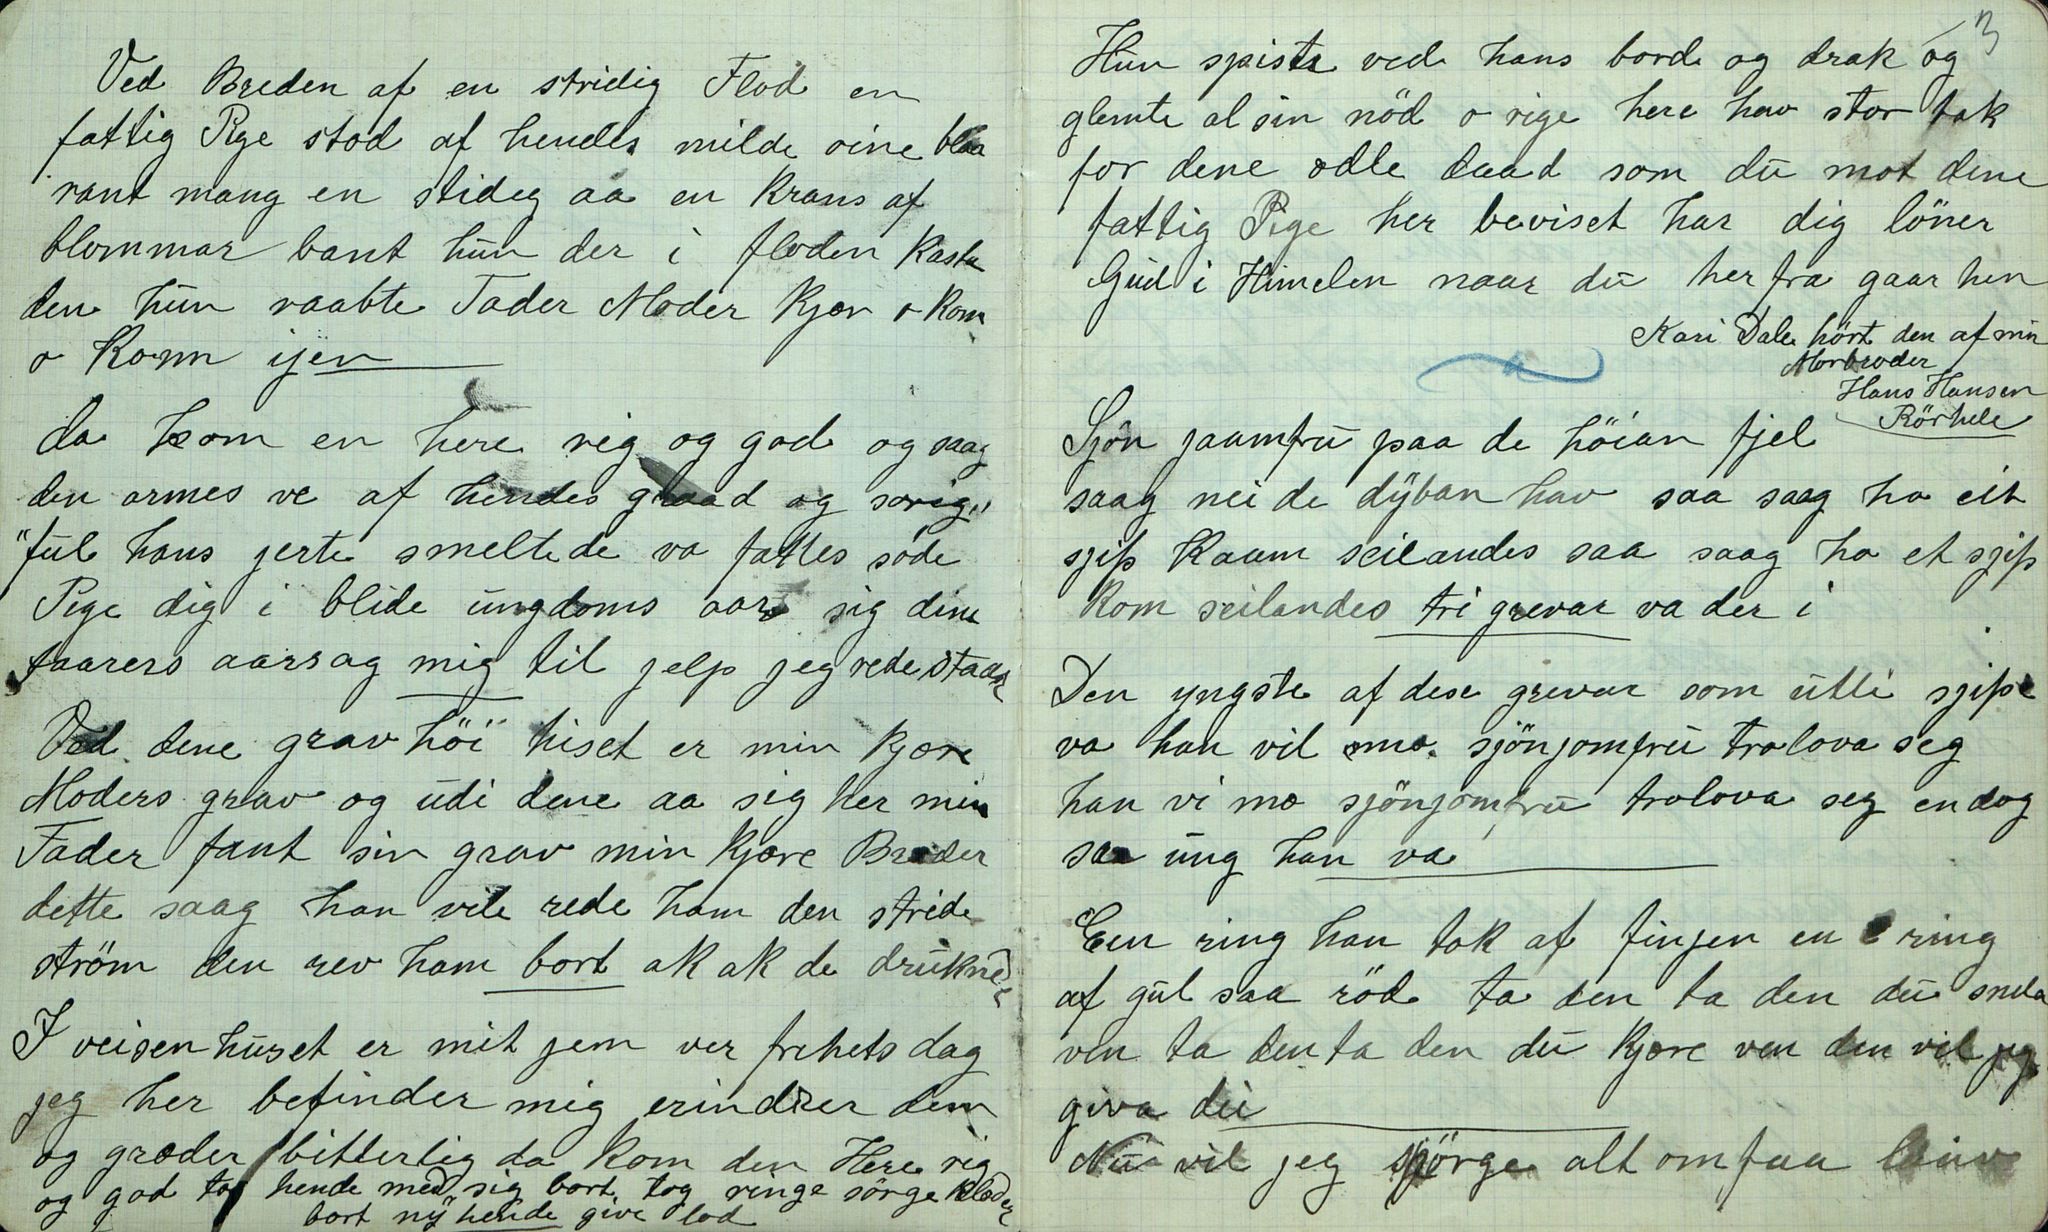 Ved Breden af en stridig Flod en
fattig Pige stod af hendes milde oine blaa
rant mang en stideg aa en Krans af
blommar bant hun der i floden Kasta
den hun raabte Fader Moder Kjær o Kom
o Kom ijen
da kom en here rig og god og saag
den armes ve af hendes graad og sorig"
"ful hans jerte smeltede va fattes söde
Pige dig i blide ungdoms aar sig dine
taarers aarsag mig til jelp jeg rede staar
Ved dene grav höi hiset er min kjære
Moders grav og udi dene aa sig her min
Fader fant sin grav min Kjære Broder
dette saag han vile rede ham den stride
ström den rev ham bort ak ak de drukne
I veisenhuset er mit jem ver frihets dag
jeg her befinder mig erindrer dem
og græder bitterlig da Kom den Here rig
og god tog hende med sig bort tog ringe sörge Klæder
bort ny hende give lod
3
Hun spiste ved hans bord og drak og
glemte al sin nöd o rige here hav stor tak
for dene ædle daad som du mot dene
fattig Pige her beviset har dig löner
Gud i Himelen naar du her fra gaar hen
Kari Dale hört den af min
Morbroder
Hans Hansen
Rörhele
Sjön jaamfru paa de höian fjel
saag nei de dyban hav saa saag ho eit
sjip Kaam seilandes saa saag ho et sjip
Kom seilandes tri grevar va der i
Den yngste af dese grevar som utti sjipe
va han vil mæ sjönjomfru trolova seg
han vi mæ sjönjomfru trolova seg endog
saa ung han va
Een ring han tok af finjen en ring
af gul saa röd ta den ta den du snila
ven ta den ta den du Kjære ven den vil jeg
giva di
Nu vil jeg sjörge alt om faa